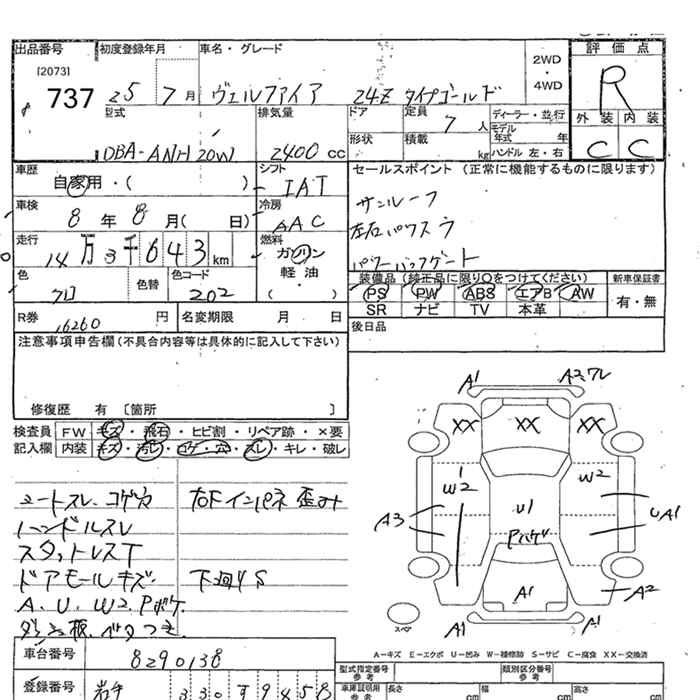 出品番号 初度登録年月 車名・グレード 2WD・4WD 評価点
[2073]
737 25 7月 ヴェルファイア 24Z タイプゴールド R
型式 排気量 ドア 定員 7人 ディーラー・並行 外装 内装
形状 積載 kg モデル年式 年
DBA-ANH20W 2400cc ハンドル 左・右 C C
車歴 自家用・( ) シフト IAT セールスポイント (正常に機能するものに限ります)
車検 8年8月( 日) 冷房 AAC サンルーフ
左右パワスラ
走行 14万3千643km 燃料 ガソリン 軽油 ( ) パワーバックゲート
色 クロ 色替 色コード 202 装備品 (純正品に限り○をつけてください) 新車保証書
PS PW ABS エアB AW 有・無
SR ナビ TV 本革
R券 16260円 名変期限 月 日 後日品
注意事項申告欄(不具合内容等は具体的に記入して下さい)
修復歴 有 [箇所 ]
検査員 FW キズ・飛石・ヒビ割・リペア跡・×要
記入欄 内装 キズ・汚レ・コゲ・穴・スレ・キレ・破レ
シートスレ、コゲ穴 右Fインパネ歪み
ハンドルスレ
スタットレスT
ドアモールキズ 下廻りS
A、U、W2、Pボケ
ダッシュ板、ベタつき
A1 A2、ワレ
XX XX XX
W2 U1 W2
A3 Pハゲ UA1
A1 A2
スペア A1 A1
A-キズ E-エクボ U-凹み W-補修跡 S-サビ C-腐食 XX-交換済
車台番号 8290138 型式指定番号 参考 類別区分番号 参考
登録番号 岩手 330 す 9458 車庫証明用 参考 長さ cm 幅 cm 高さ cm